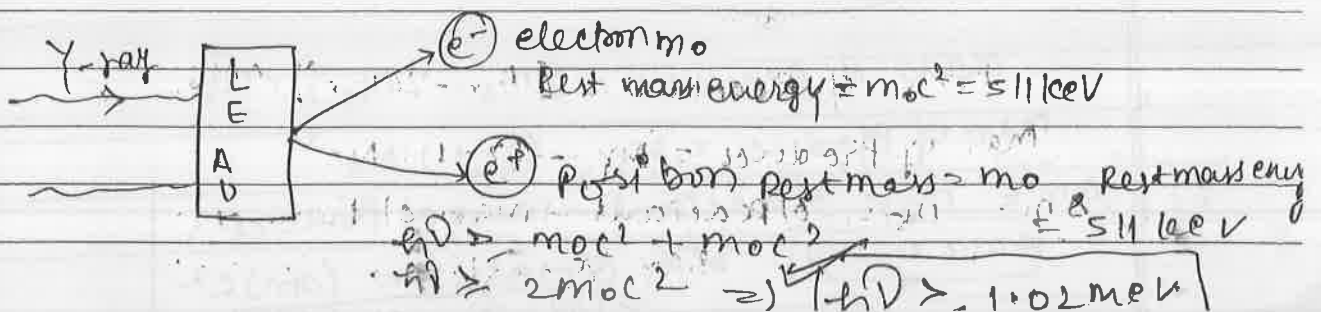 γ-ray
L
E
A
D
e⁻ electron m₀
Rest mass energy = m₀c² = 511 keV
e⁺ positron Rest mass = m₀ Rest mass energy
= 511 keV
hν ≥ m₀c² + m₀c²
hν ≥ 2m₀c² ⇒ hν ≥ 1.02 MeV